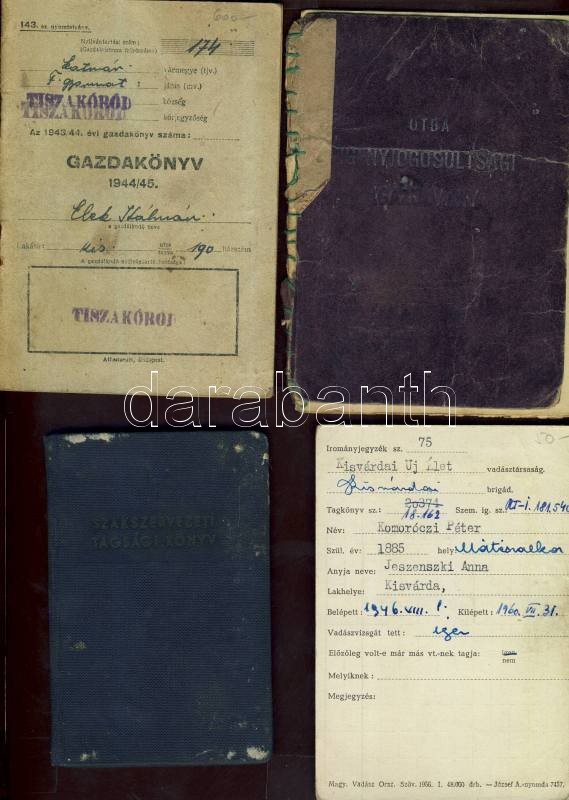 143. sz. nyomtatvány.
600-
Nyilvántartási szám:
(Gazdakönyvre följebbi)
174
Szatmár vármegye (tjv.)
F. gyarmat járás (mv.)
TISZAKÓRÓD község
TISZAKÓRÓD körjegyzőség
Az 1943/44. évi gazdakönyv száma:
GAZDAKÖNYV
1944/45.
Elek Kálmán
a gazdálkodó neve
Lakása: Kis utca 190 házszám
TISZAKÓRÓD
Athenaeum, Budapest.
OTBA
IGÉNYJOGOSULTSÁGI
darabanth
SZAKSZERVEZETI
TAGSÁGI KÖNYV
50-
Irományjegyzék sz. 75
Kisvárdai Uj Élet vadásztársaság.
Kisvárdai brigád.
Tagkönyv sz.: 20371 18.162 Szem. ig. sz. AT-I. 181.540
Név: Komoróczi Péter
Szül. év: 1885 hely: Mátészalka
Anyja neve: Jeszenszki Anna
Lakhelye: Kisvárda,
Belépett: 1946. VIII. 1. Kilépett: 1960. VII. 31.
Vadászvizsgát tett: igen
Előzőleg volt-e már más vt.-nek tagja: igen nem
Melyiknek:
Megjegyzés:
Magy. Vadász Orsz. Szöv. 1956. I. 48.000 drb. — József A.-nyomda 7457.